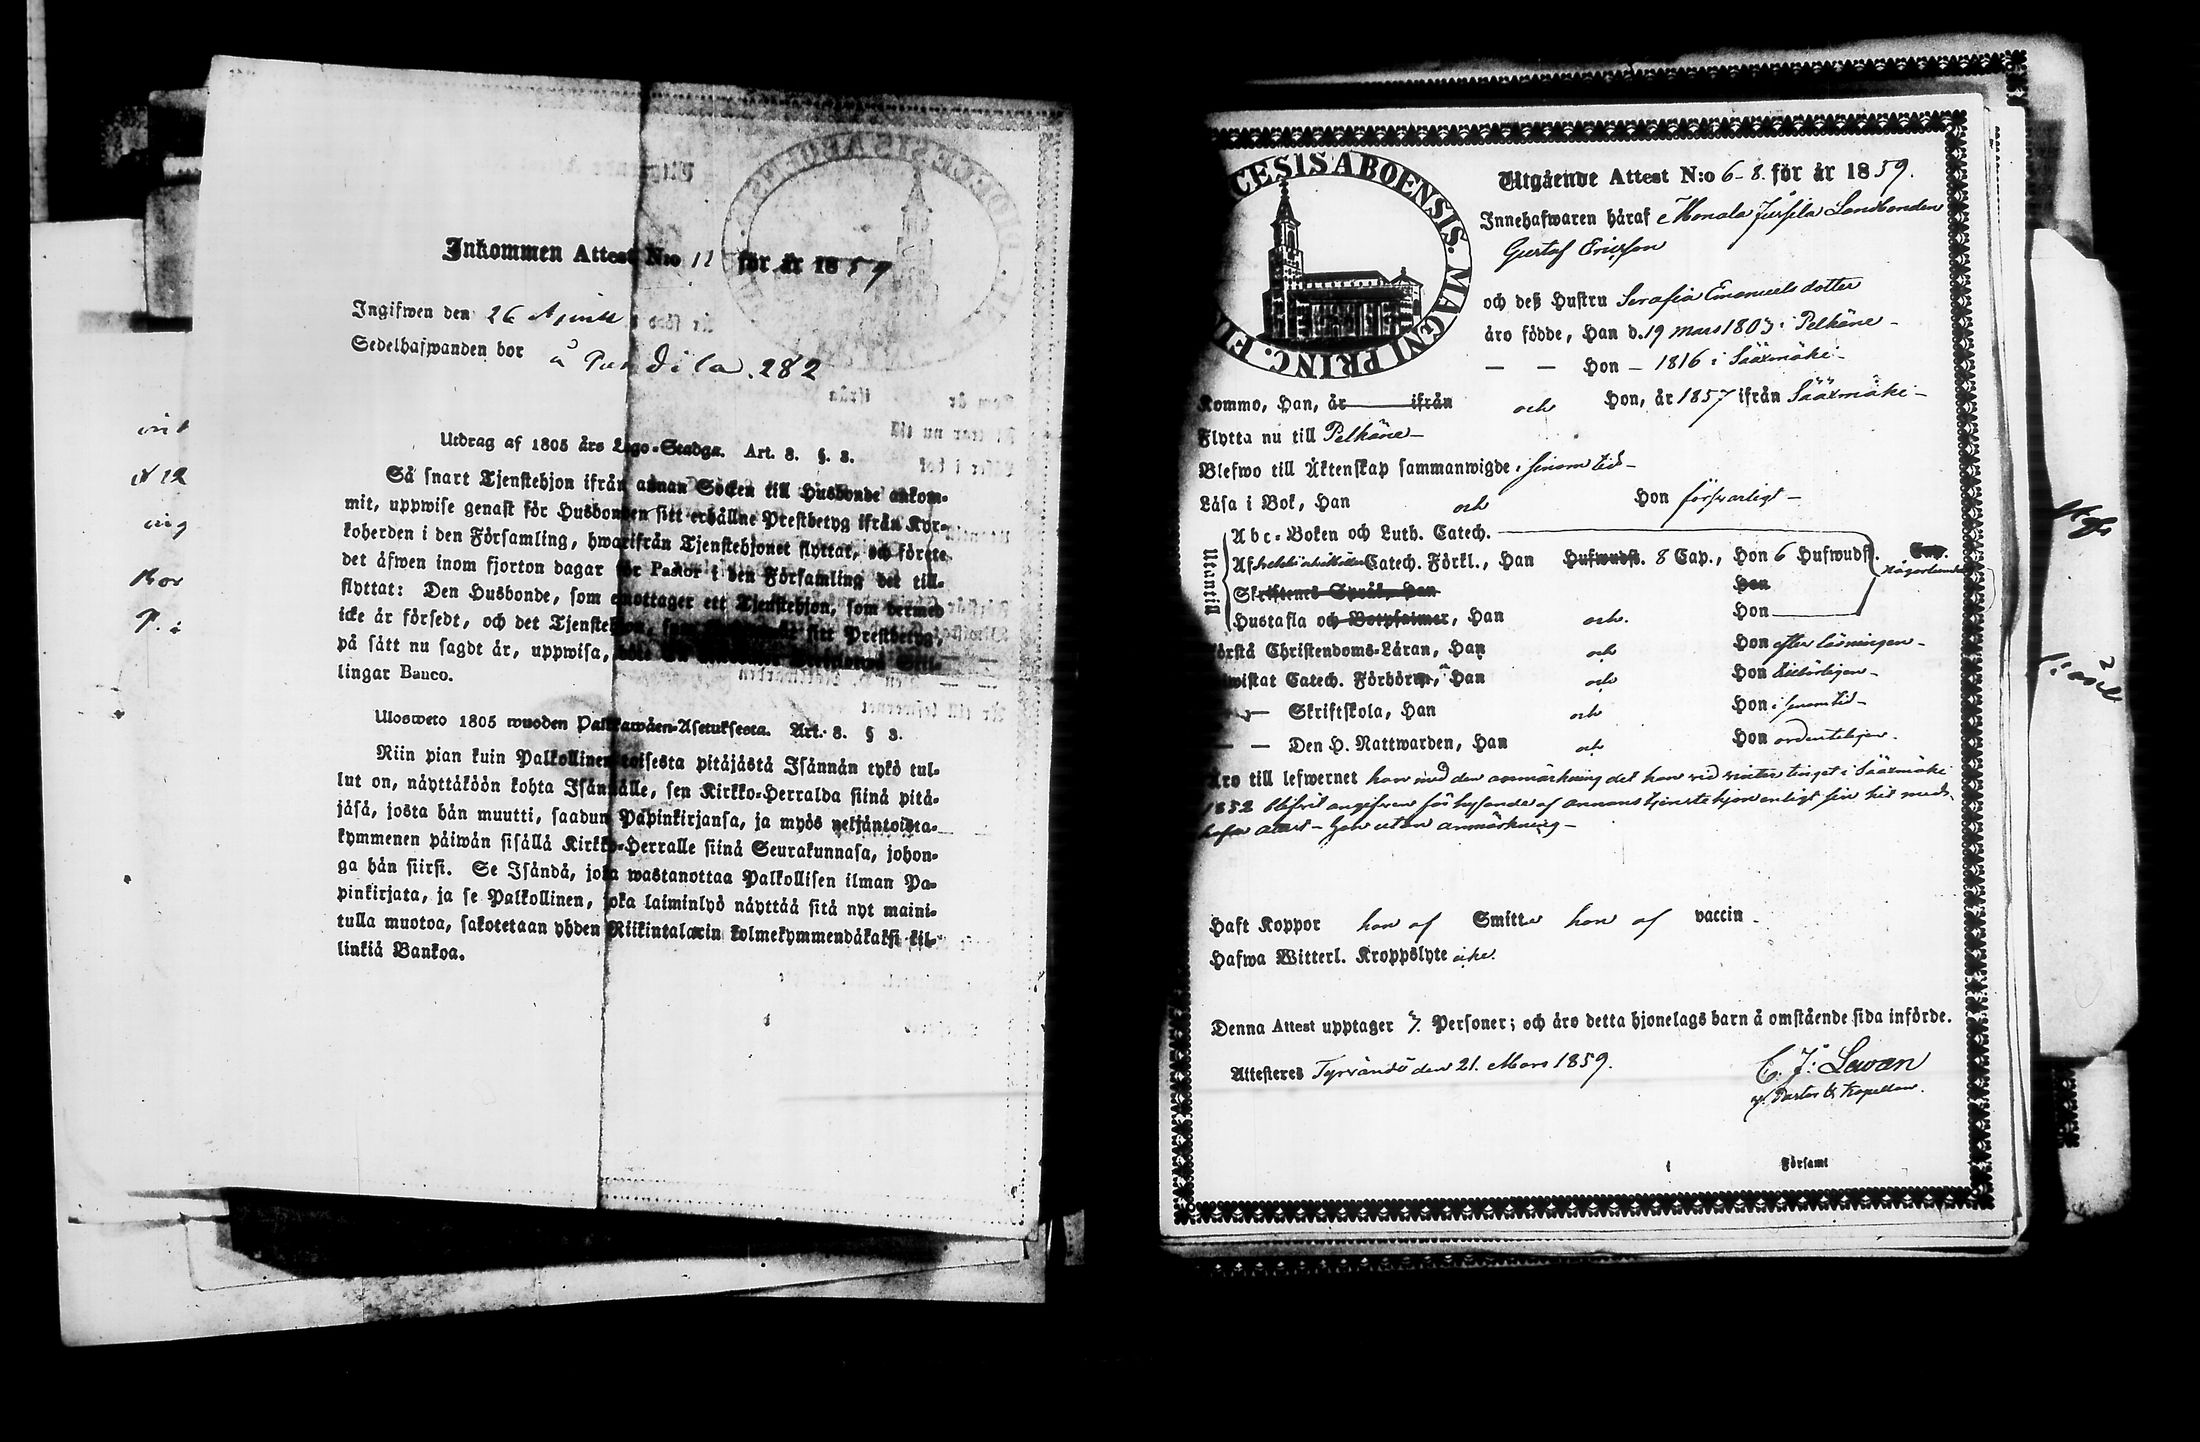 Inkommen Attest N:o 11 för år 1859
Ingifwen den 26 April
Sedelhafwanden bor å Pundila. 282
Utdrag af 1805 års Lego-Stadga. Art. 8. §. 8.
Så snart Tjenstehjon ifrån annan Socken till Husbonde ankom-
mit, uppwise genast för Husbonden sitt erhållne Prestbetyg ifrån Kyr-
koherden i den Församling, hwarifrån Tjenstehjonet flyttat, och förete
det äfwen inom fjorton dagar för Pastor i den Församling det till-
flyttat: Den Husbonde, som emottager ett Tjenstehjon, som dermed
icke är försedt, och det Tjenstehjon, sitt Prestbetyg,
på sätt nu sagdt är, uppwisa,
lingar Banco.
Uloswеto 1805 wuoden Palkkawäen-Asetuksesta. Art. 8. § 8.
Niin pian kuin Palkollinen toisesta pitäjästä Isännän tykö tul-
lut on, näyttäköön kohta Isännälle, sen Kirkko-Herralda siinä pitä-
jäsä, josta hän muutti, saadun Papinkirjansa, ja myös neljäntoista-
kymmenen päiwän sisällä Kirkko-Herralle siinä Seurakunnasa, johon-
ga hän siirsi. Se Isändä, joka wastanottaa Palkollisen ilman Pa-
pinkirjata, ja se Palkollinen, joka laiminlyö näyttää sitä nyt maini-
tulla muotoa, sakotetaan yhden Riikintalarin kolmekymmendäkaksi kil-
linkiä Bankoa.
CESIS ABOENSIS. MAGNI PRINC. FI
Utgående Attest N:o 6-8. för år 1859.
Innehafwaren häraf Landbonden
Gustaf Ericsson
och deß Hustru Serafia Emanuelsdotter
äro födde, Han d. 19 mars 1803 i Pelkäne -
— — Hon - 1816 i Sääxmäki -
Kommo, Han, år ifrån och Hon, år 1857 ifrån Sääxmäki -
Flytta nu till Pelkäne -
Blefwo till Äktenskap sammanwigde i sinom tid -
Läsa i Bok, Han och Hon försvarligt -
Utantill
Abc-Boken och Luth. Catech.
Af Catech. Förkl., Han Hufwudst. 8 Cap., Hon 6 Hufwudst. Cap.
Skriftenes Språk, Han Hon
Hustafla och Botpsalmer, Han och. Hon
Förstå Christendoms-Läran, Han och Hon efter läsningen -
Catech. Förhören, Han och Hon tillbörligen -
— Skriftskola, Han och Hon i sinom tid -
— — Den H. Nattwarden, Han och Hon ordentligen.
Äro till lefwernet han med den anmärkning det han vid vintertinget i Sääxmäki
1852 blifvit angifven för hysande af annans tjenstehjon enligt sin hit med-
attest - hon utan anmärkning -
Haft Koppor han af Smitta hon af vaccin.
Hafwa Witterl. Kroppslyte icke.
Denna Attest upptager 7. Personer; och äro detta hjonelags barn å omstående sida införde.
Attesteres Tyrvändö den 21. Mars 1859.
C. J. Lewan
v. Pastor & Kapellan.
Församl